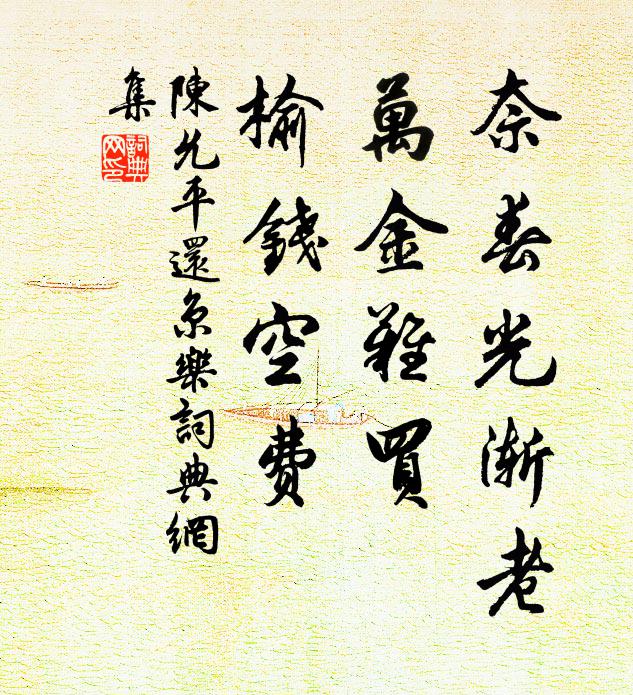 奈春光漸老
萬金難買
榆錢空費
陳允平還京樂詞典網
集
詞典
网印